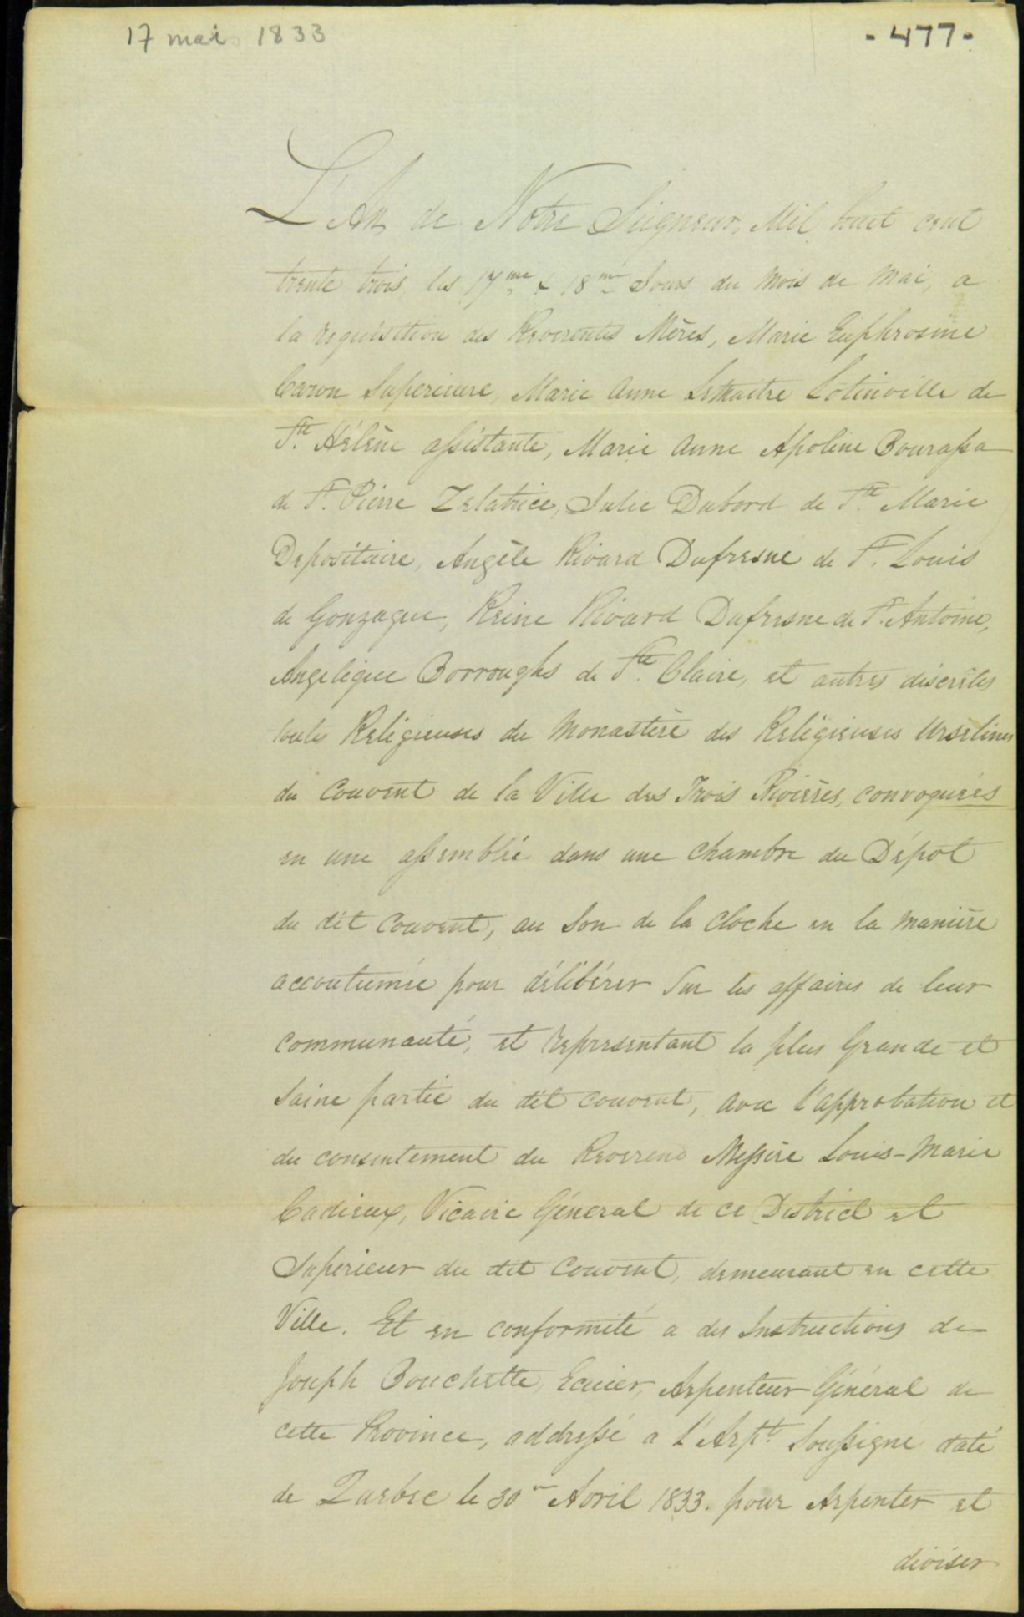 17 mai 1833
- 477 -
L'An de Notre Seigneur, Mil huit cent
trente trois les 17me & 18me Jours du Mois de Mai, a
la requisition des Reverentes Mères, Marie Euphrosine
Caron Superieure, Marie Anne LeMaitre Lotinville de
Ste Hélène assistante, Marie Anne Apoline Bourassa
de St. Pierre Zelatrice, Julie Dubord de Ste Marie
Depositaire, Angèle Rivard Dufresne de St. Louis
de Gonzague, Reine Rivard Dufresne de St. Antoine,
Angelique Borroughs de Ste. Claire, et autres discrètes
toutes Religieuses du Monastère des Religieuses Urselines
du Couvent de la Ville des Trois Rivières, convoquées
en une assemblée dans une chambre du Dépot
du dit Couvent, au Son de la Cloche en la Manière
accoutumée pour délibérer Sur les affaires de leur
communauté, et representant la plus Grande et
Saine partie du dit couvent, avec l'approbation et
du consentement du Reverend Messire Louis-Marie
Cadieux, Vicaire Général de ce District et
Superieur du dit Couvent, demeurant en cette
Ville. Et en conformité a des Instructions de
Joseph Bouchette, Ecuier, Arpenteur Général de
cette Province, addressé a l'Arpt. Soussigne daté
de Quebec le 30me Avril 1833. pour Arpenter et
diviser